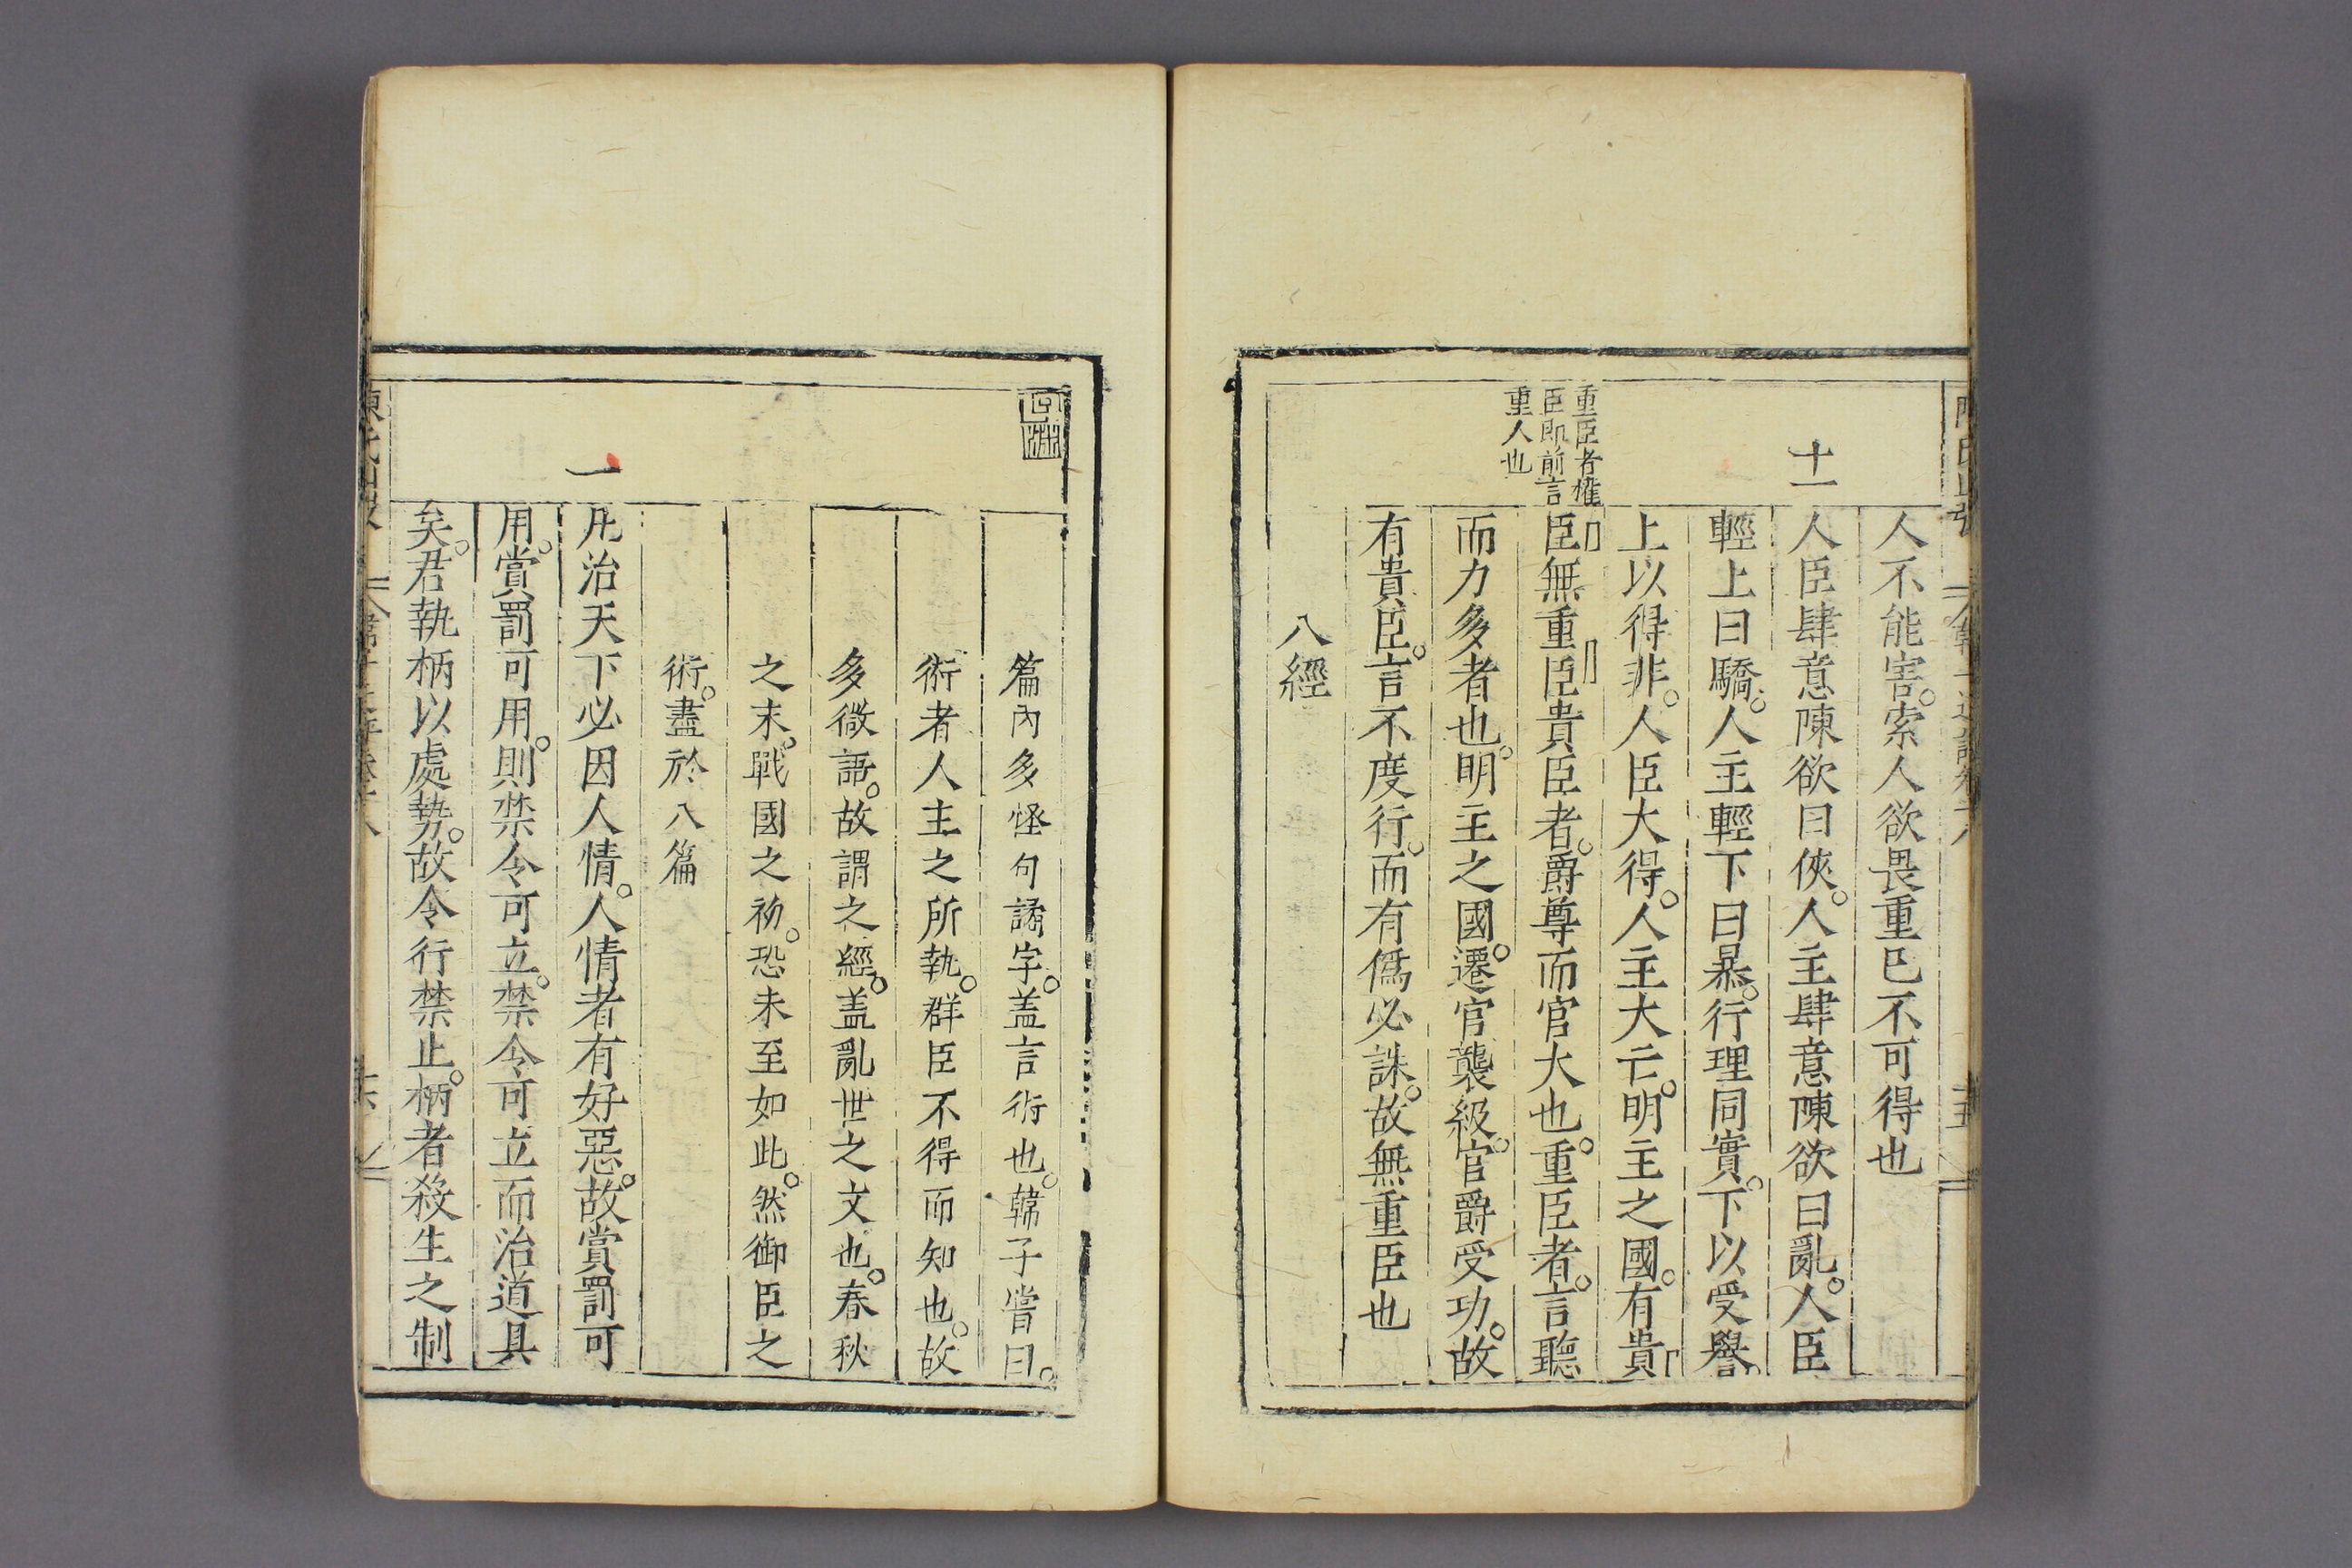 十一
重臣者權
臣即前言
重人也
人不能害。索人欲畏重已不可得也
人臣肆意陳欲曰俠。人主肆意陳欲曰亂。人臣
輕上曰驕。人主輕下曰暴。行理同實。下以受譽。
上以得非。人臣大得。人主大亡。明主之國。有貴
臣無重臣貴臣者。爵尊而官大也。重臣者。言聽
而力多者也。明主之國。遷官襲級。官爵受功。故
有貴臣。言不度行。而有僞必誅。故無重臣也
八經
篇內多怪句譎字。盖言術也。韓子嘗曰。
術者人主之所執。群臣不得而知也。故
多微語。故謂之經。盖亂世之文也。春秋
之末。戰國之初。恐未至如此。然御臣之
術。盡於八篇
一
凡治天下必因人情。人情者有好惡。故賞罰可
用。賞罰可用。則禁令可立。禁令可立而治道具
矣。君執柄以處勢。故令行禁止。柄者殺生之制